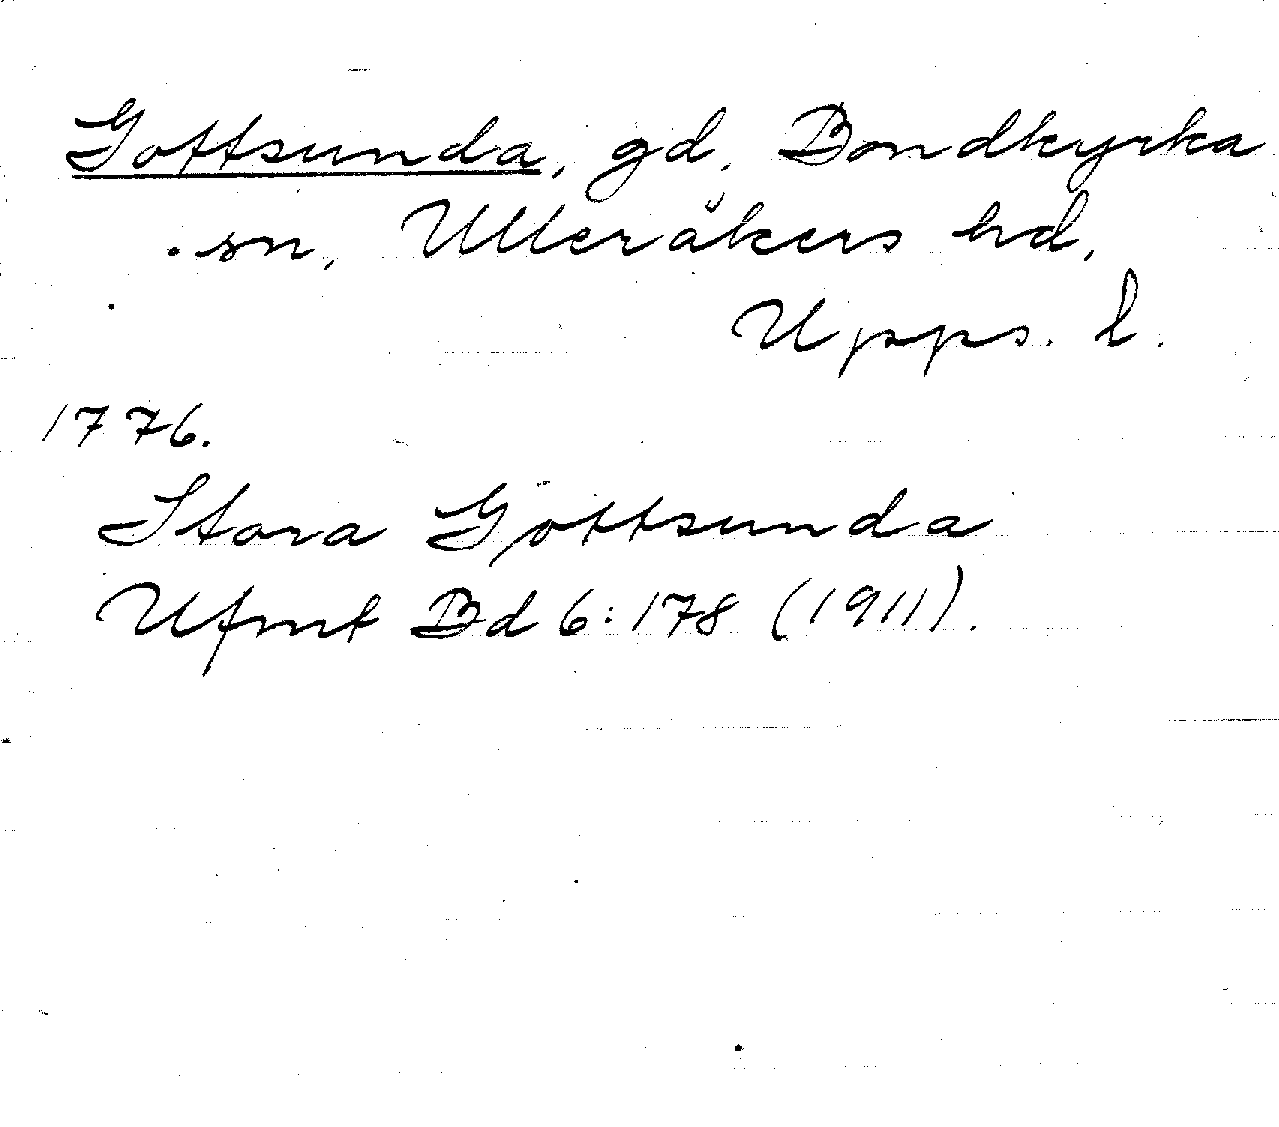 Gottsunda, gd, Bondkyrka
sn, Ulleråkers hd,
Upps. l.
1776.
Stora Gottsunda
Ufmt Bd 6:178 (1911).